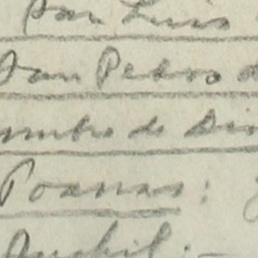 San Luis
San Pedro d
ombre de Dio
Poanas:
Suchil. —